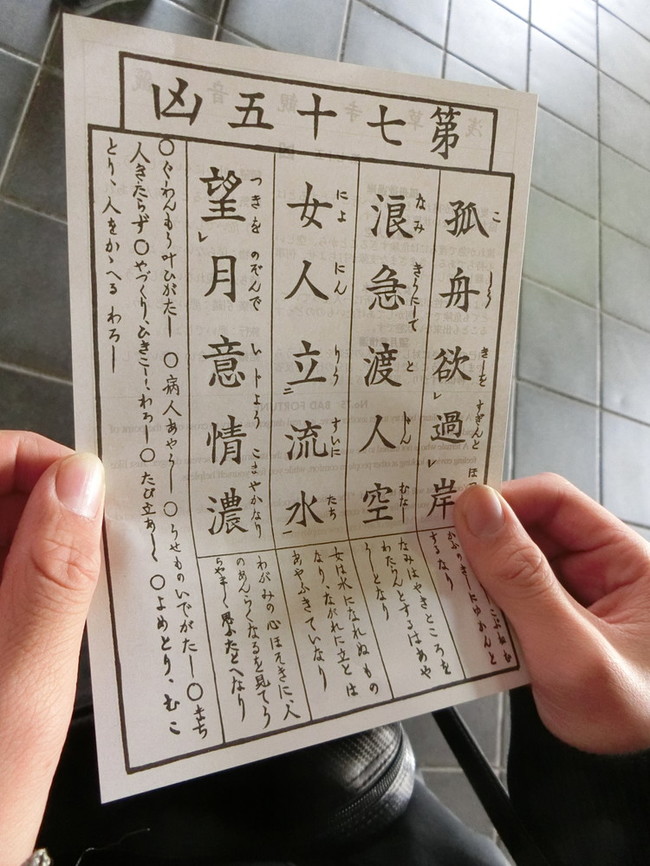 第七十五凶
孤舟欲過岸
こ しう きしを すぎんと ほつ
するなり
浪急渡人空
なみ きうにして と じん むなし
なみはやきところを
わたらんとするはあや
うしとなり
女人立流水
によ にん りう すいに たち
女は水になれぬもの
なり、ながれに立とは
あやふきていなり
望月意情濃
つきを のぞんで い じよう こまやかなり
わがみの心ほそきに、人
のあんらくなるを見てう
らやましく思ふたとへなり
〇ぐわんもう叶ひがたし 〇病人あやうし 〇うせものいでがたし〇まち
人きたらず〇やづくり、ひきこし、わろし〇たび立あしし 〇よめとり、むこ
とり、人をかゝへる わろし